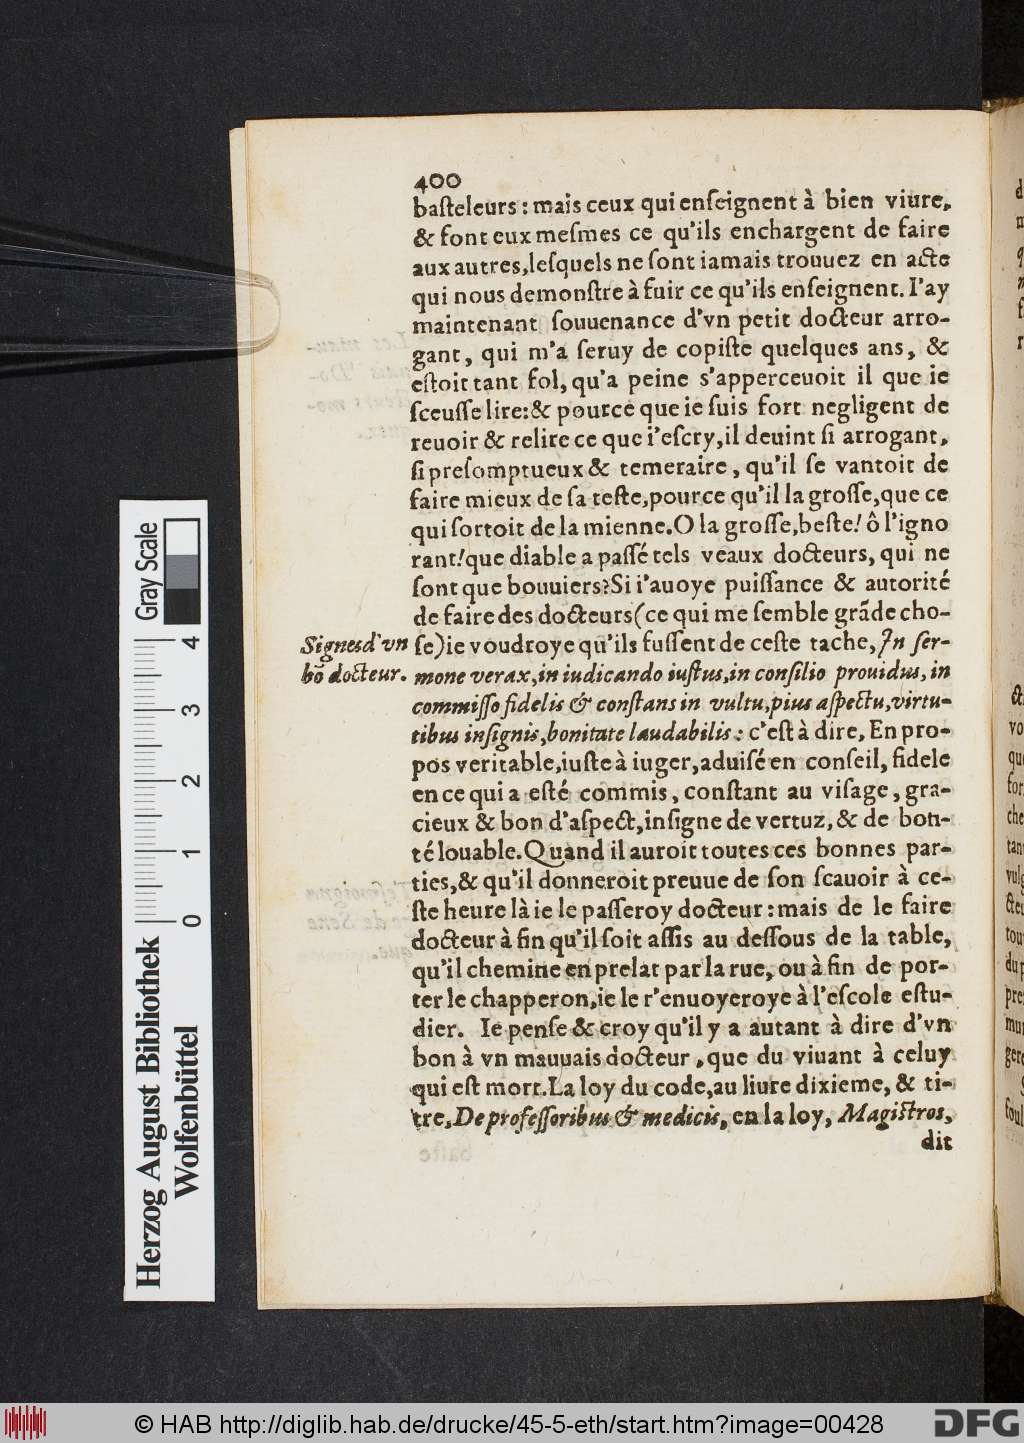 400
baſteleurs: mais ceux qui enſeignent à bien viure,
& font eux meſmes ce qu'ils enchargent de faire
aux autres, leſquels ne ſont iamais trouuez en acte
qui nous demonſtre à fuir ce qu'ils enſeignent. I'ay
maintenant ſouuenance d'vn petit docteur arro-
gant, qui m'a ſeruy de copiſte quelques ans, &
eſtoit tant fol, qu'a peine s'apperceuoit il que ie
ſceuſſe lire: & pource que ie ſuis fort negligent de
reuoir & relire ce que i'eſcry, il deuint ſi arrogant,
ſi preſomptueux & temeraire, qu'il ſe vantoit de
faire mieux de ſa teſte, pource qu'il la groſſe, que ce
qui ſortoit de la mienne. O la groſſe, beſte! ô l'igno
rant! que diable a paſſé tels veaux docteurs, qui ne
ſont que bouuiers? Si i'auoye puiſſance & autorité
de faire des docteurs (ce qui me ſemble grãde cho-
Signes d'vn
bõ docteur.
ſe) ie voudroye qu'ils fuſſent de ceſte tache, In ſer-
mone verax, in iudicando iuſtus, in conſilio prouidus, in
commiſſo fidelis & conſtans in vultu, pius aſpectu, virtu-
tibus inſignis, bonitate laudabilis: c'eſt à dire, En pro-
pos veritable, iuſte à iuger, aduiſé en conſeil, fidele
en ce qui a eſté commis, conſtant au viſage, gra-
cieux & bon d'aſpect, inſigne de vertuz, & de bon-
té louable. Quand il auroit toutes ces bonnes par-
ties, & qu'il donneroit preuue de ſon ſcauoir à ce-
ſte heure là ie le paſſeroy docteur: mais de le faire
docteur à fin qu'il ſoit aſſis au deſſous de la table,
qu'il chemine en prelat par la rue, ou à fin de por-
ter le chapperon, ie le r'enuoyeroye à l'eſcole eſtu-
dier. Ie penſe & croy qu'il y a autant à dire d'vn
bon à vn mauuais docteur, que du viuant à celuy
qui eſt mort. La loy du code, au liure dixieme, & ti-
tre, De profeſſoribus & medicis, en la loy, Magiſtros,
dit
Gray Scale
0 1 2 3 4
Herzog August Bibliothek
Wolfenbüttel
© HAB http://diglib.hab.de/drucke/45-5-eth/start.htm?image=00428
DFG